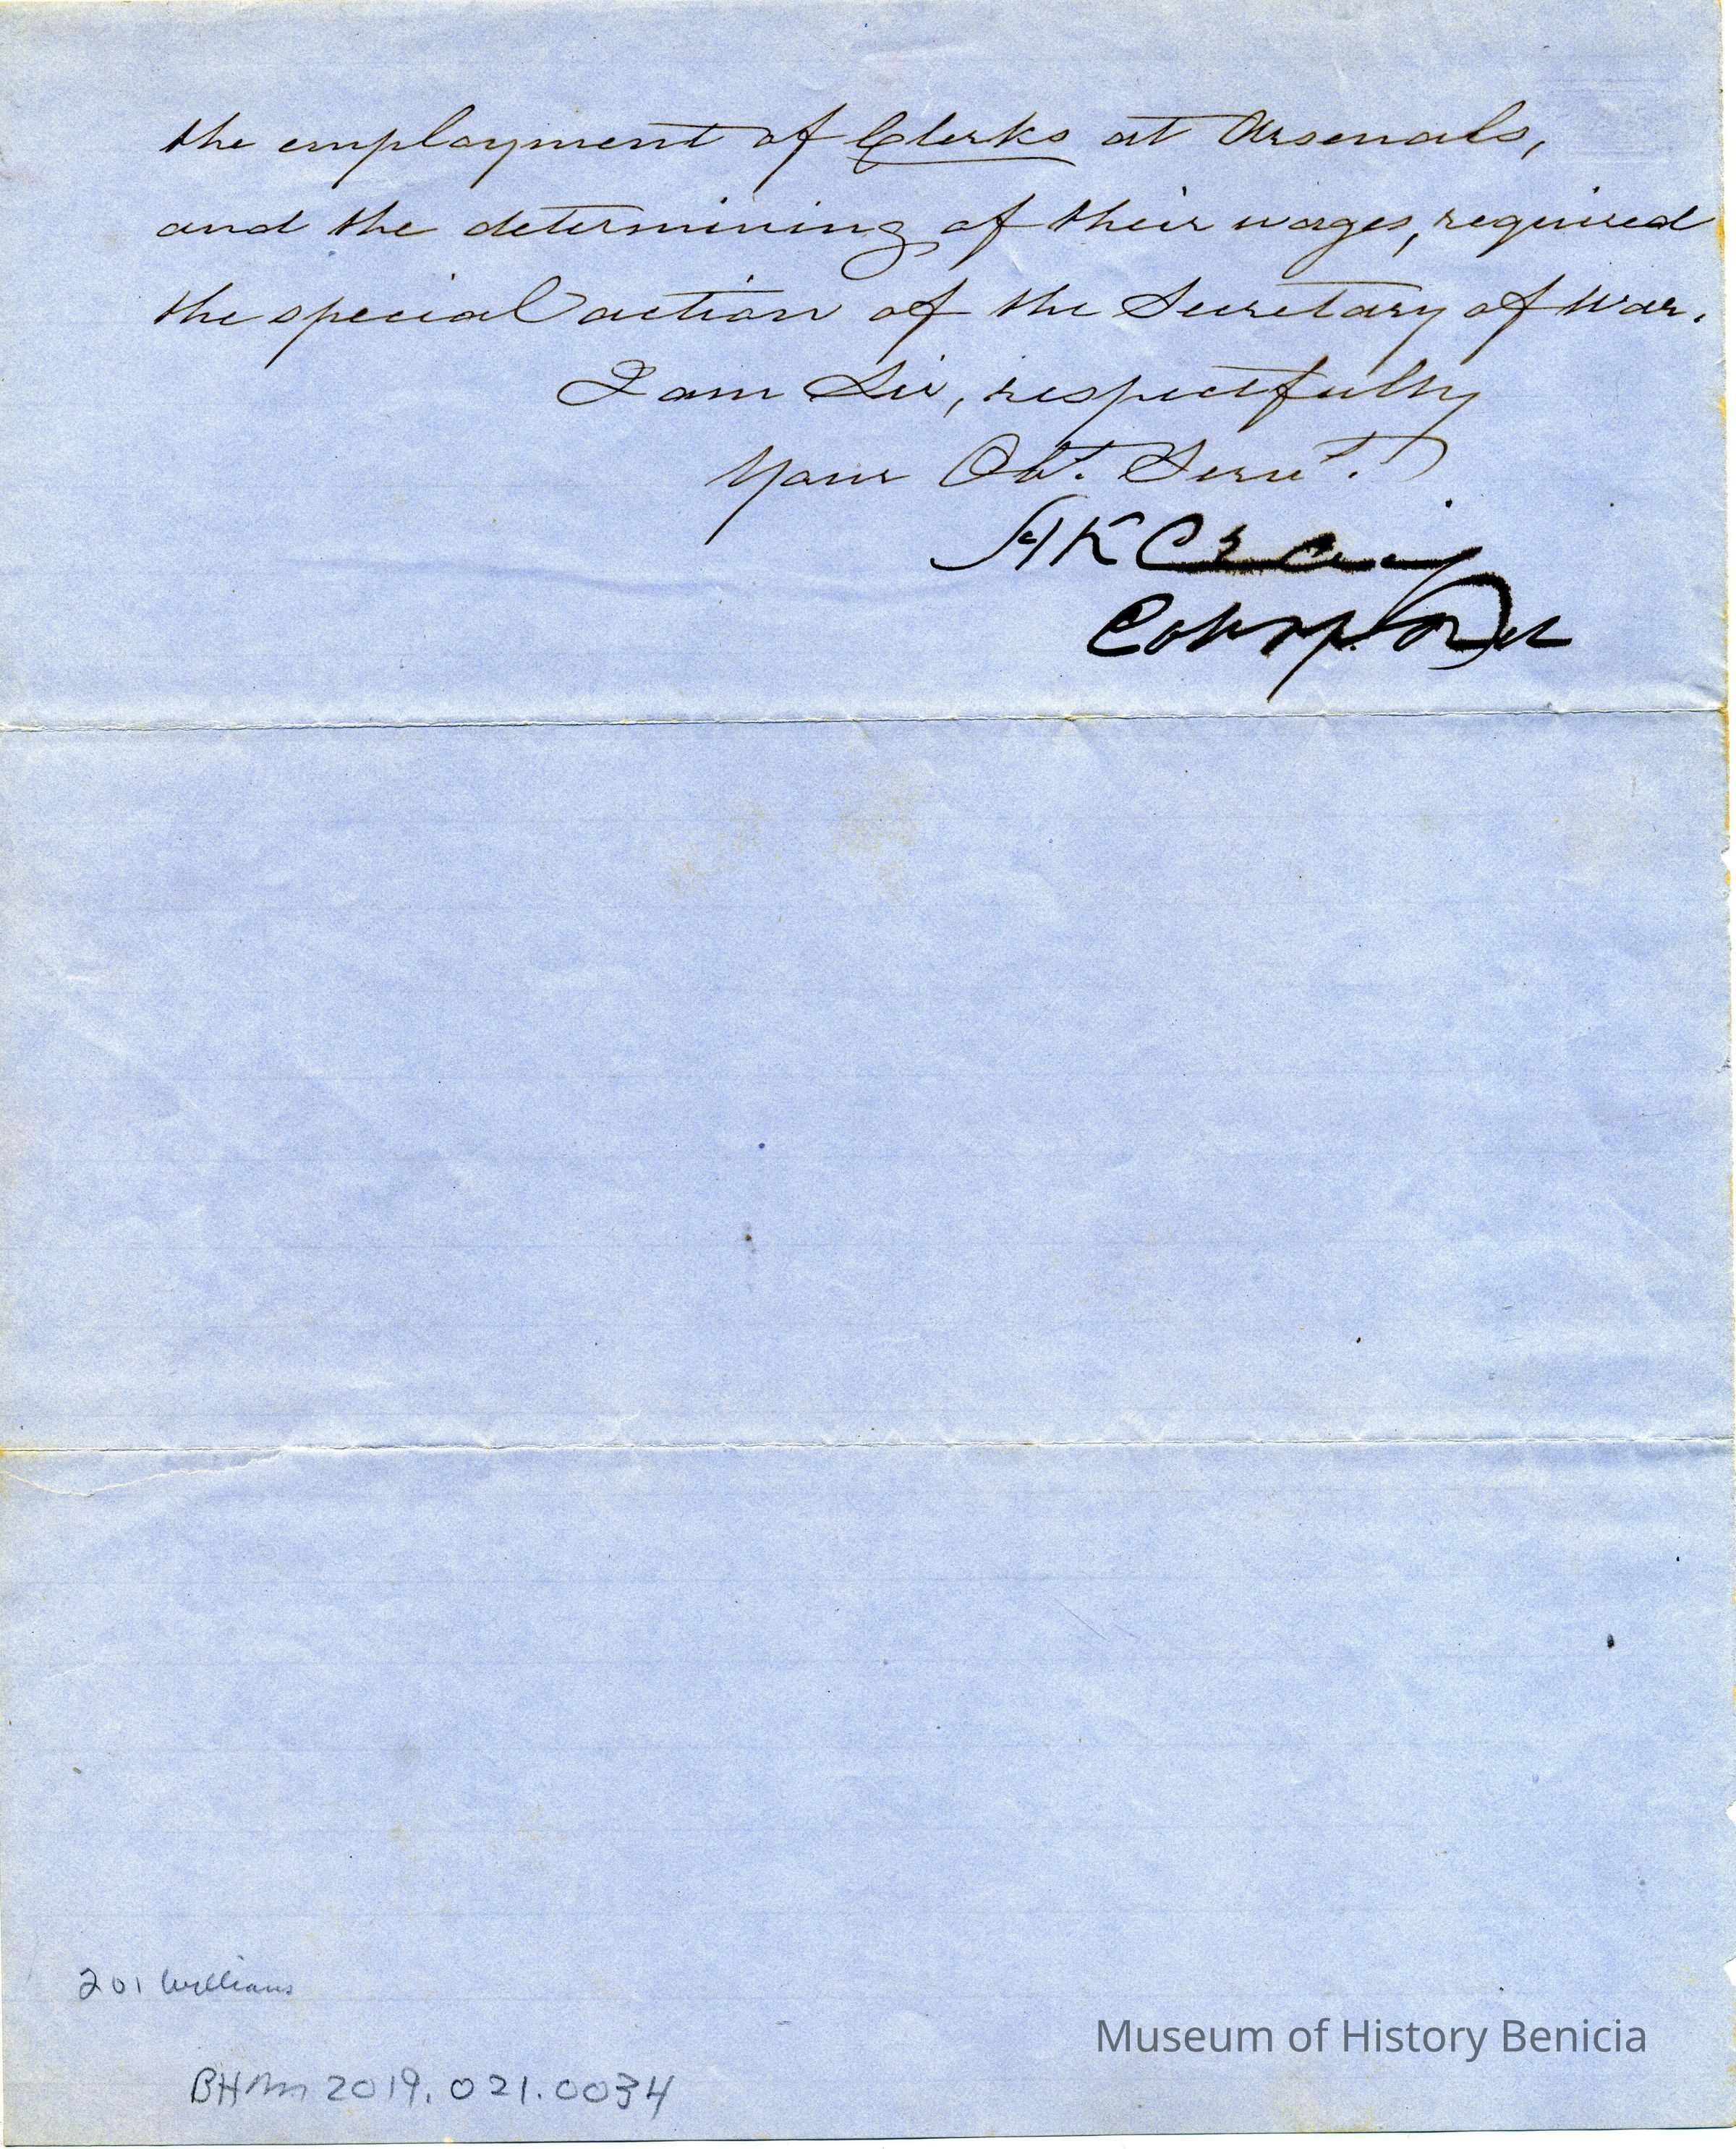 the employment of Clerks at Arsenals,
and the determining of their wages, required
the special action of the Secretary of War.
I am Sir, respectfully
Your Obt. Servt.
HK Craig
Col of Ord
201 Williams
Museum of History Benicia
BHM 2019.021.0034